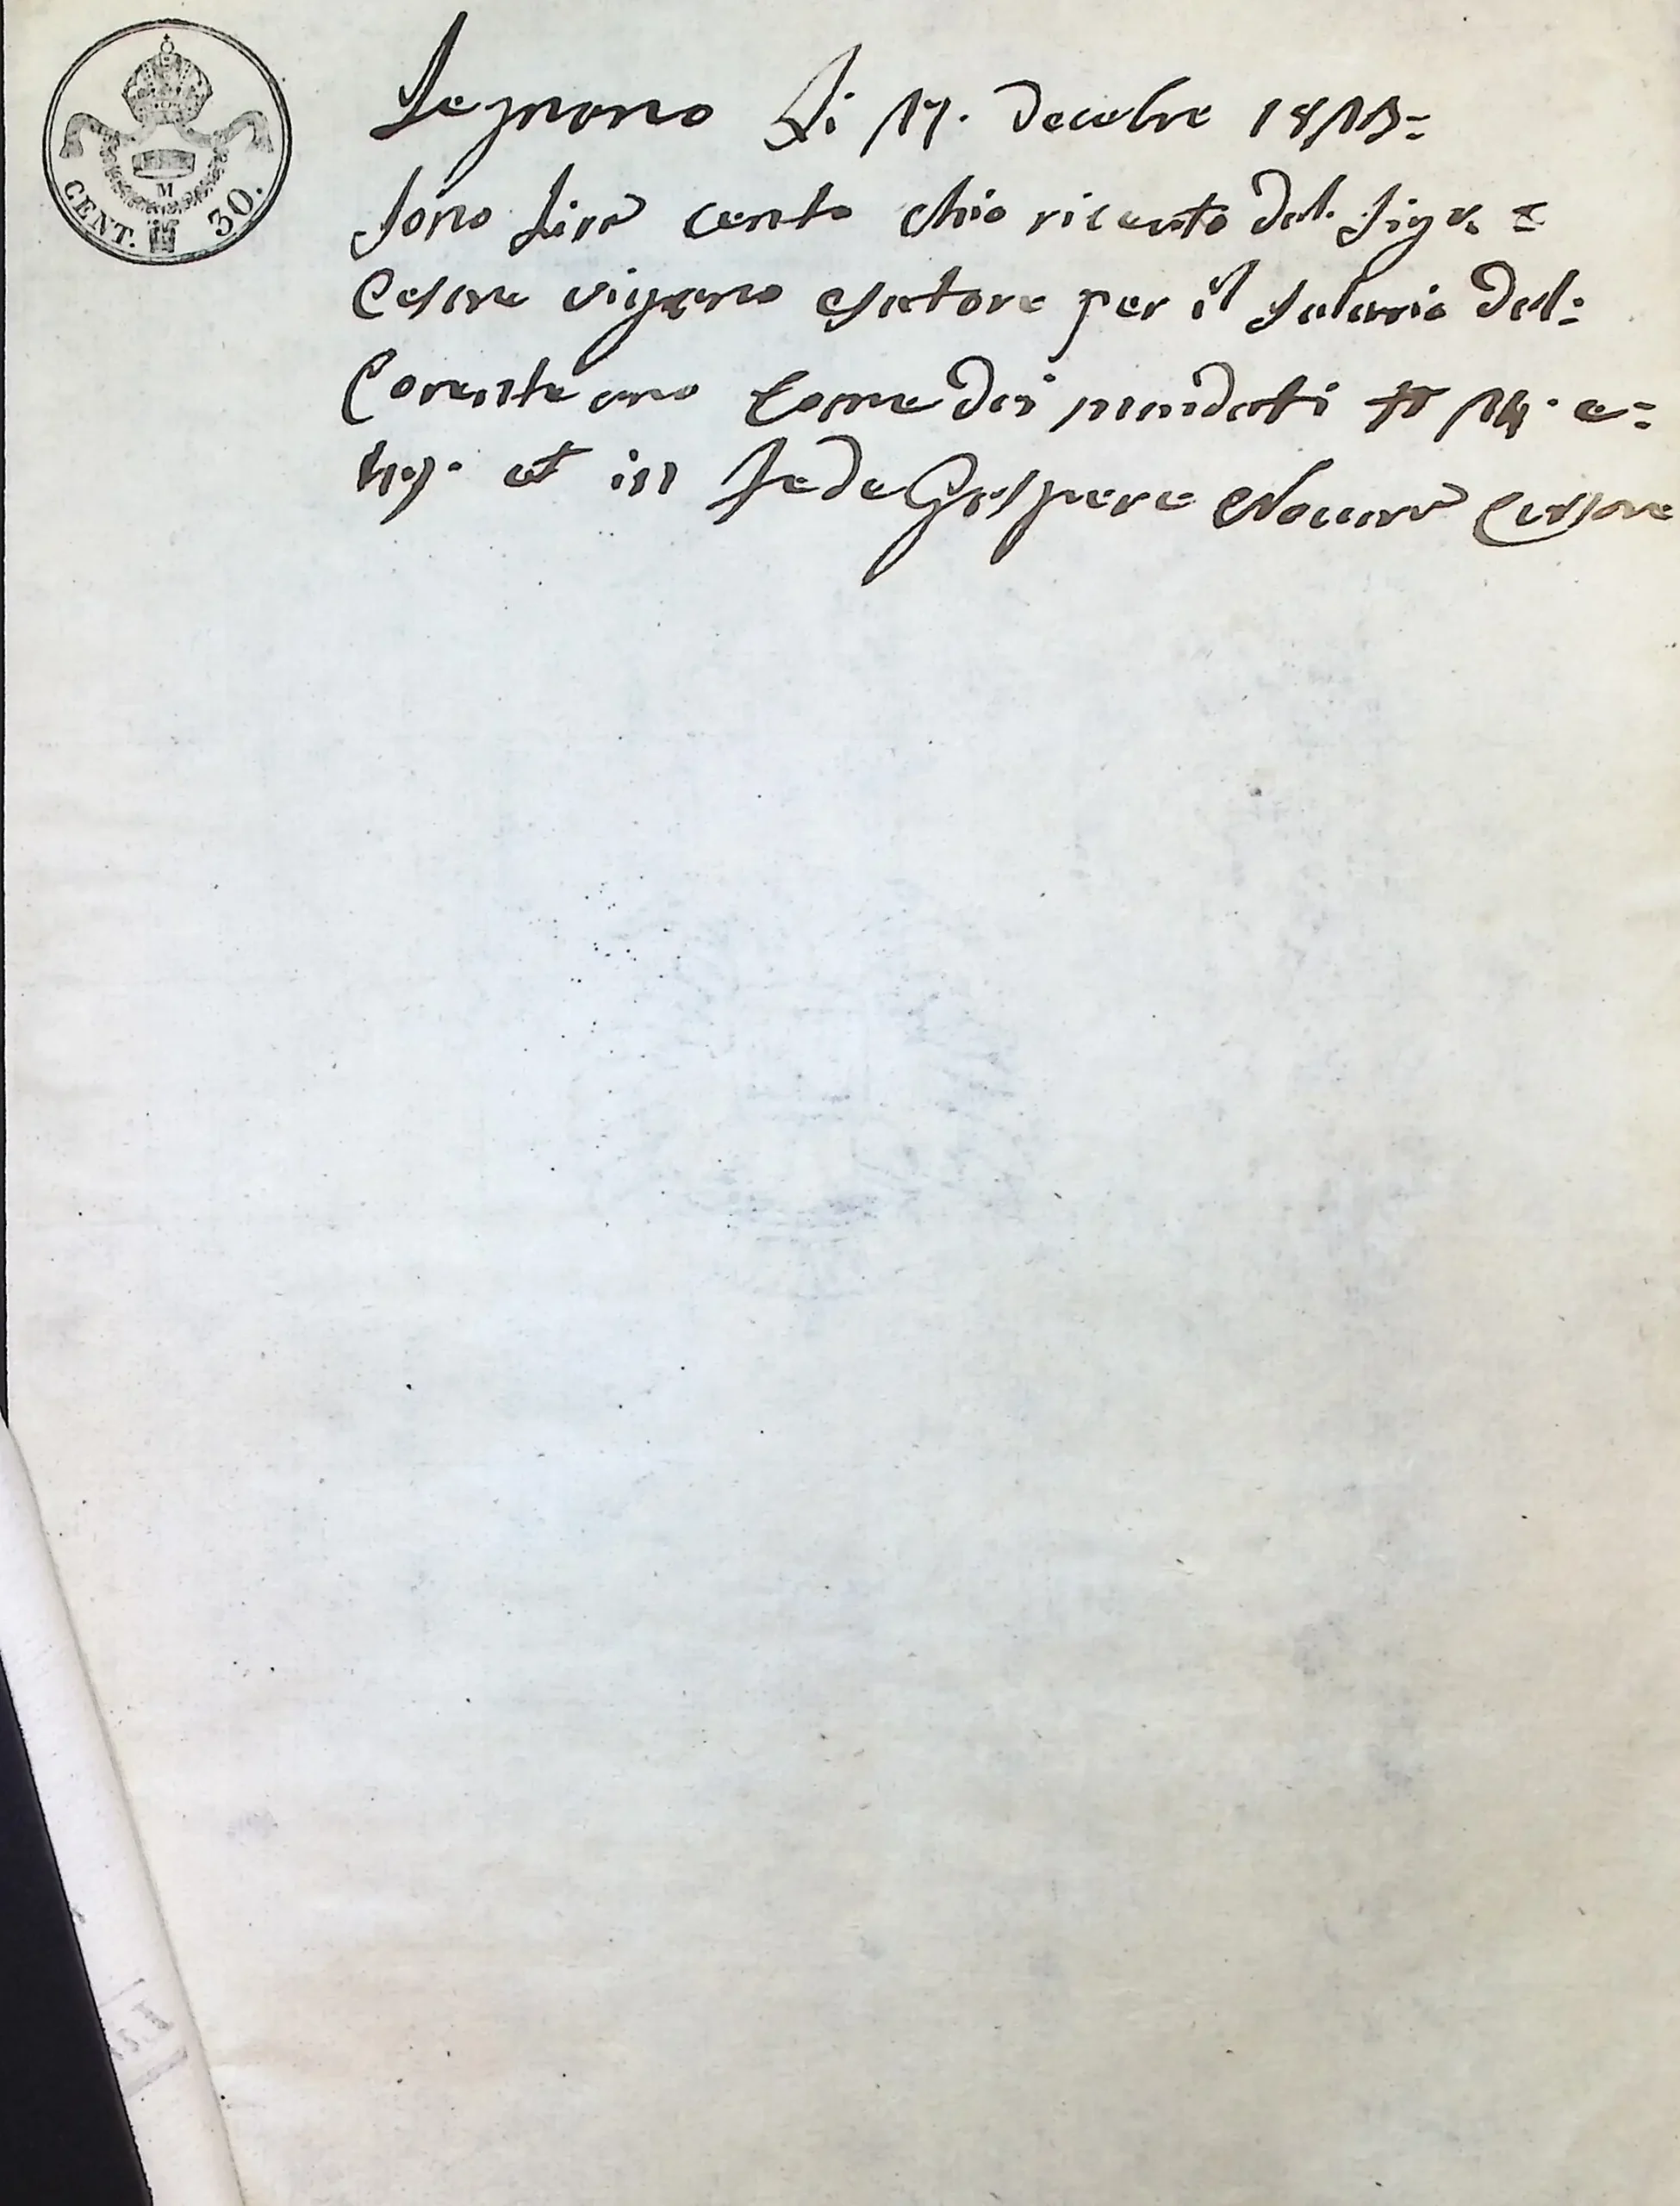 CENT. 30.
M
Legnano Li 17. Decebre 1813=
Sono Lire cento chio riceuto dal. Sigr. =
Cesare vigano esatore per il salario del=
Corente ano Come dei mandati 14. e=
et in fede Gaspere Cursore